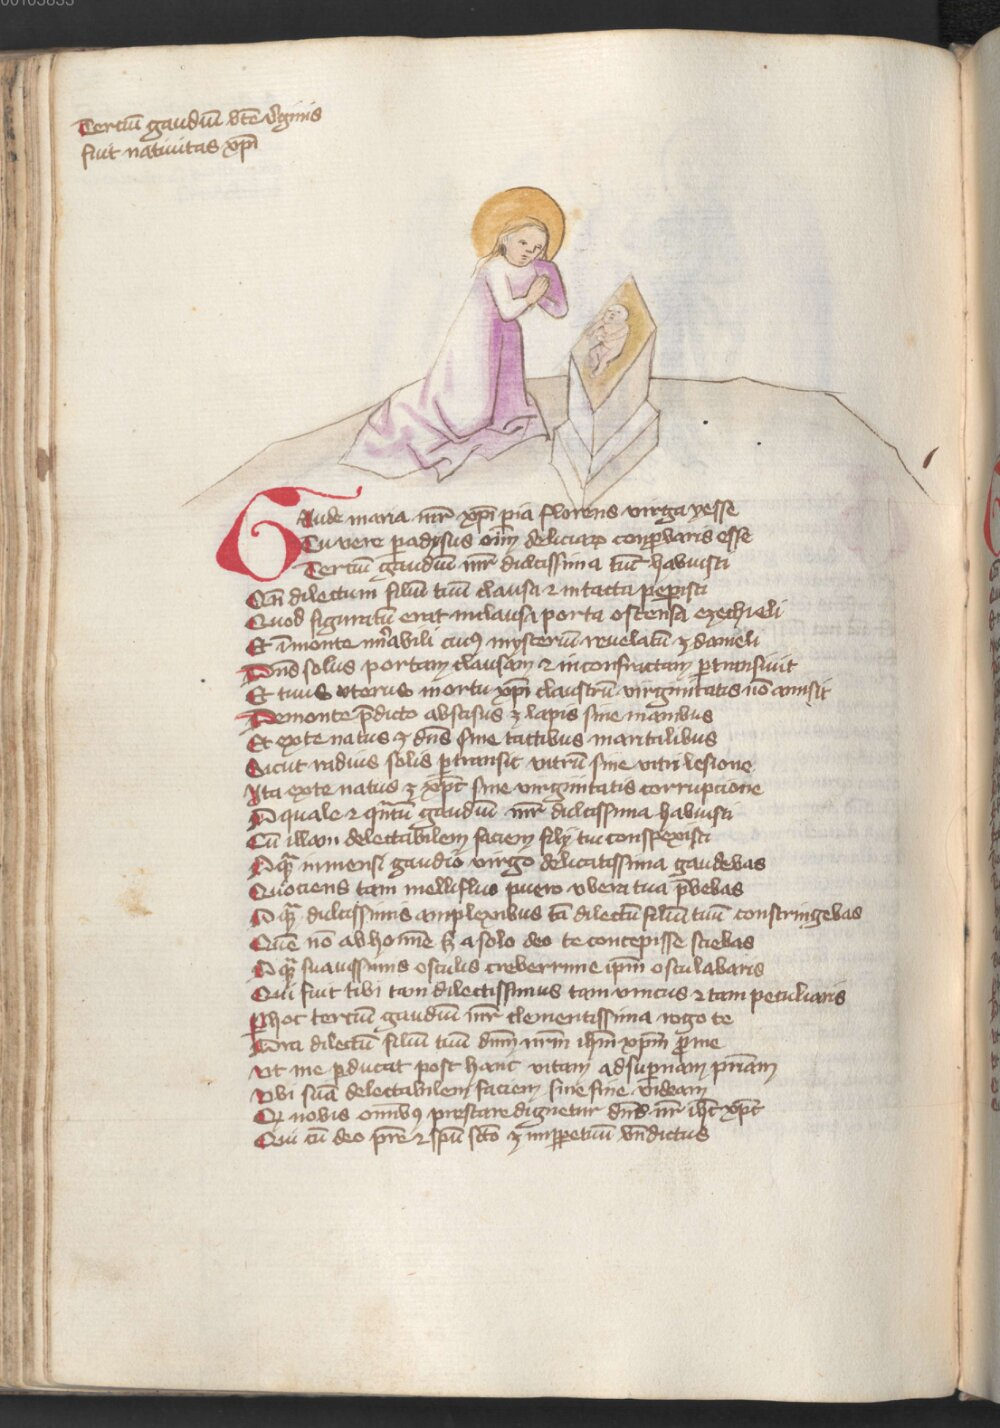 00103833
Terciū gaudiū bt̄e v̄ginis
fuit natiuitas xp̄i
Gaude maria mr̄ xp̄i pia florens virga yesse
Tu vere padysus oīm deliciaꝝ conꝓbaris esse
Terciū gaudiū mr̄ dulcissima tūc habuisti
Qn̄ dilectum filiū tuū clausa ⁊ intacta peꝑisti
Quod figuratū erat in clausa porta ostensa ezechieli
Et ī monte mirabili cuiꝰ mysteriū reuelatū ē danieli
Dn̄s solus portam clausam ⁊ inconfractam ꝑtransiuit
Et tuus vterus in ortu xp̄i claustrū virginitatis nō amisit
De monte p̄dicto abscisus ē lapis sine manibus
Et ex te natus ē dn̄s sine tactibus maritalibus
Sicut radius solis ꝑtransit vitrū sine vitri lesione
Ita ex te natus ē xp̄c sine virginitatis corrupcione
O quale ⁊ qn̄tū gaudiū mr̄ dulcissima habuisti
Cū illam delectabilem faciem filij tui conspexisti
O qꝫ inmensi gaudio virgo delicatissima gaudebas
Quociens tam mellifluo puero vbera tua p̄bebas
O qꝫ dulcissimis amplexibus tā dilectū filiū tuū constringebas
Quē nō ab hoīne sꝫ a solo deo te concepisse sciebas
O qꝫ suauissimis osculis creberrime ip̄m osculabaris
Qui fuit tibi tam dilectissimus tam vnicus ⁊ tam peculiaris
Ꝑ hoc terciū gaudiū mr̄ clementissima rogo te
Ora dilectū filiū tuū dn̄m nr̄m ih̄m xp̄m ꝓ me
Vt me ꝑducat post hanc vitam ad suꝑnam pr̄iam
Vbi suā delectabilem faciem sine fine videam
Qꝫ nobis om̄ibꝰ prestare dignetur dn̄s nr̄ ih̄c xp̄c
Qui cū deo pr̄e ⁊ sp̄u sc̄o ē in ꝑpetuū bn̄dictus